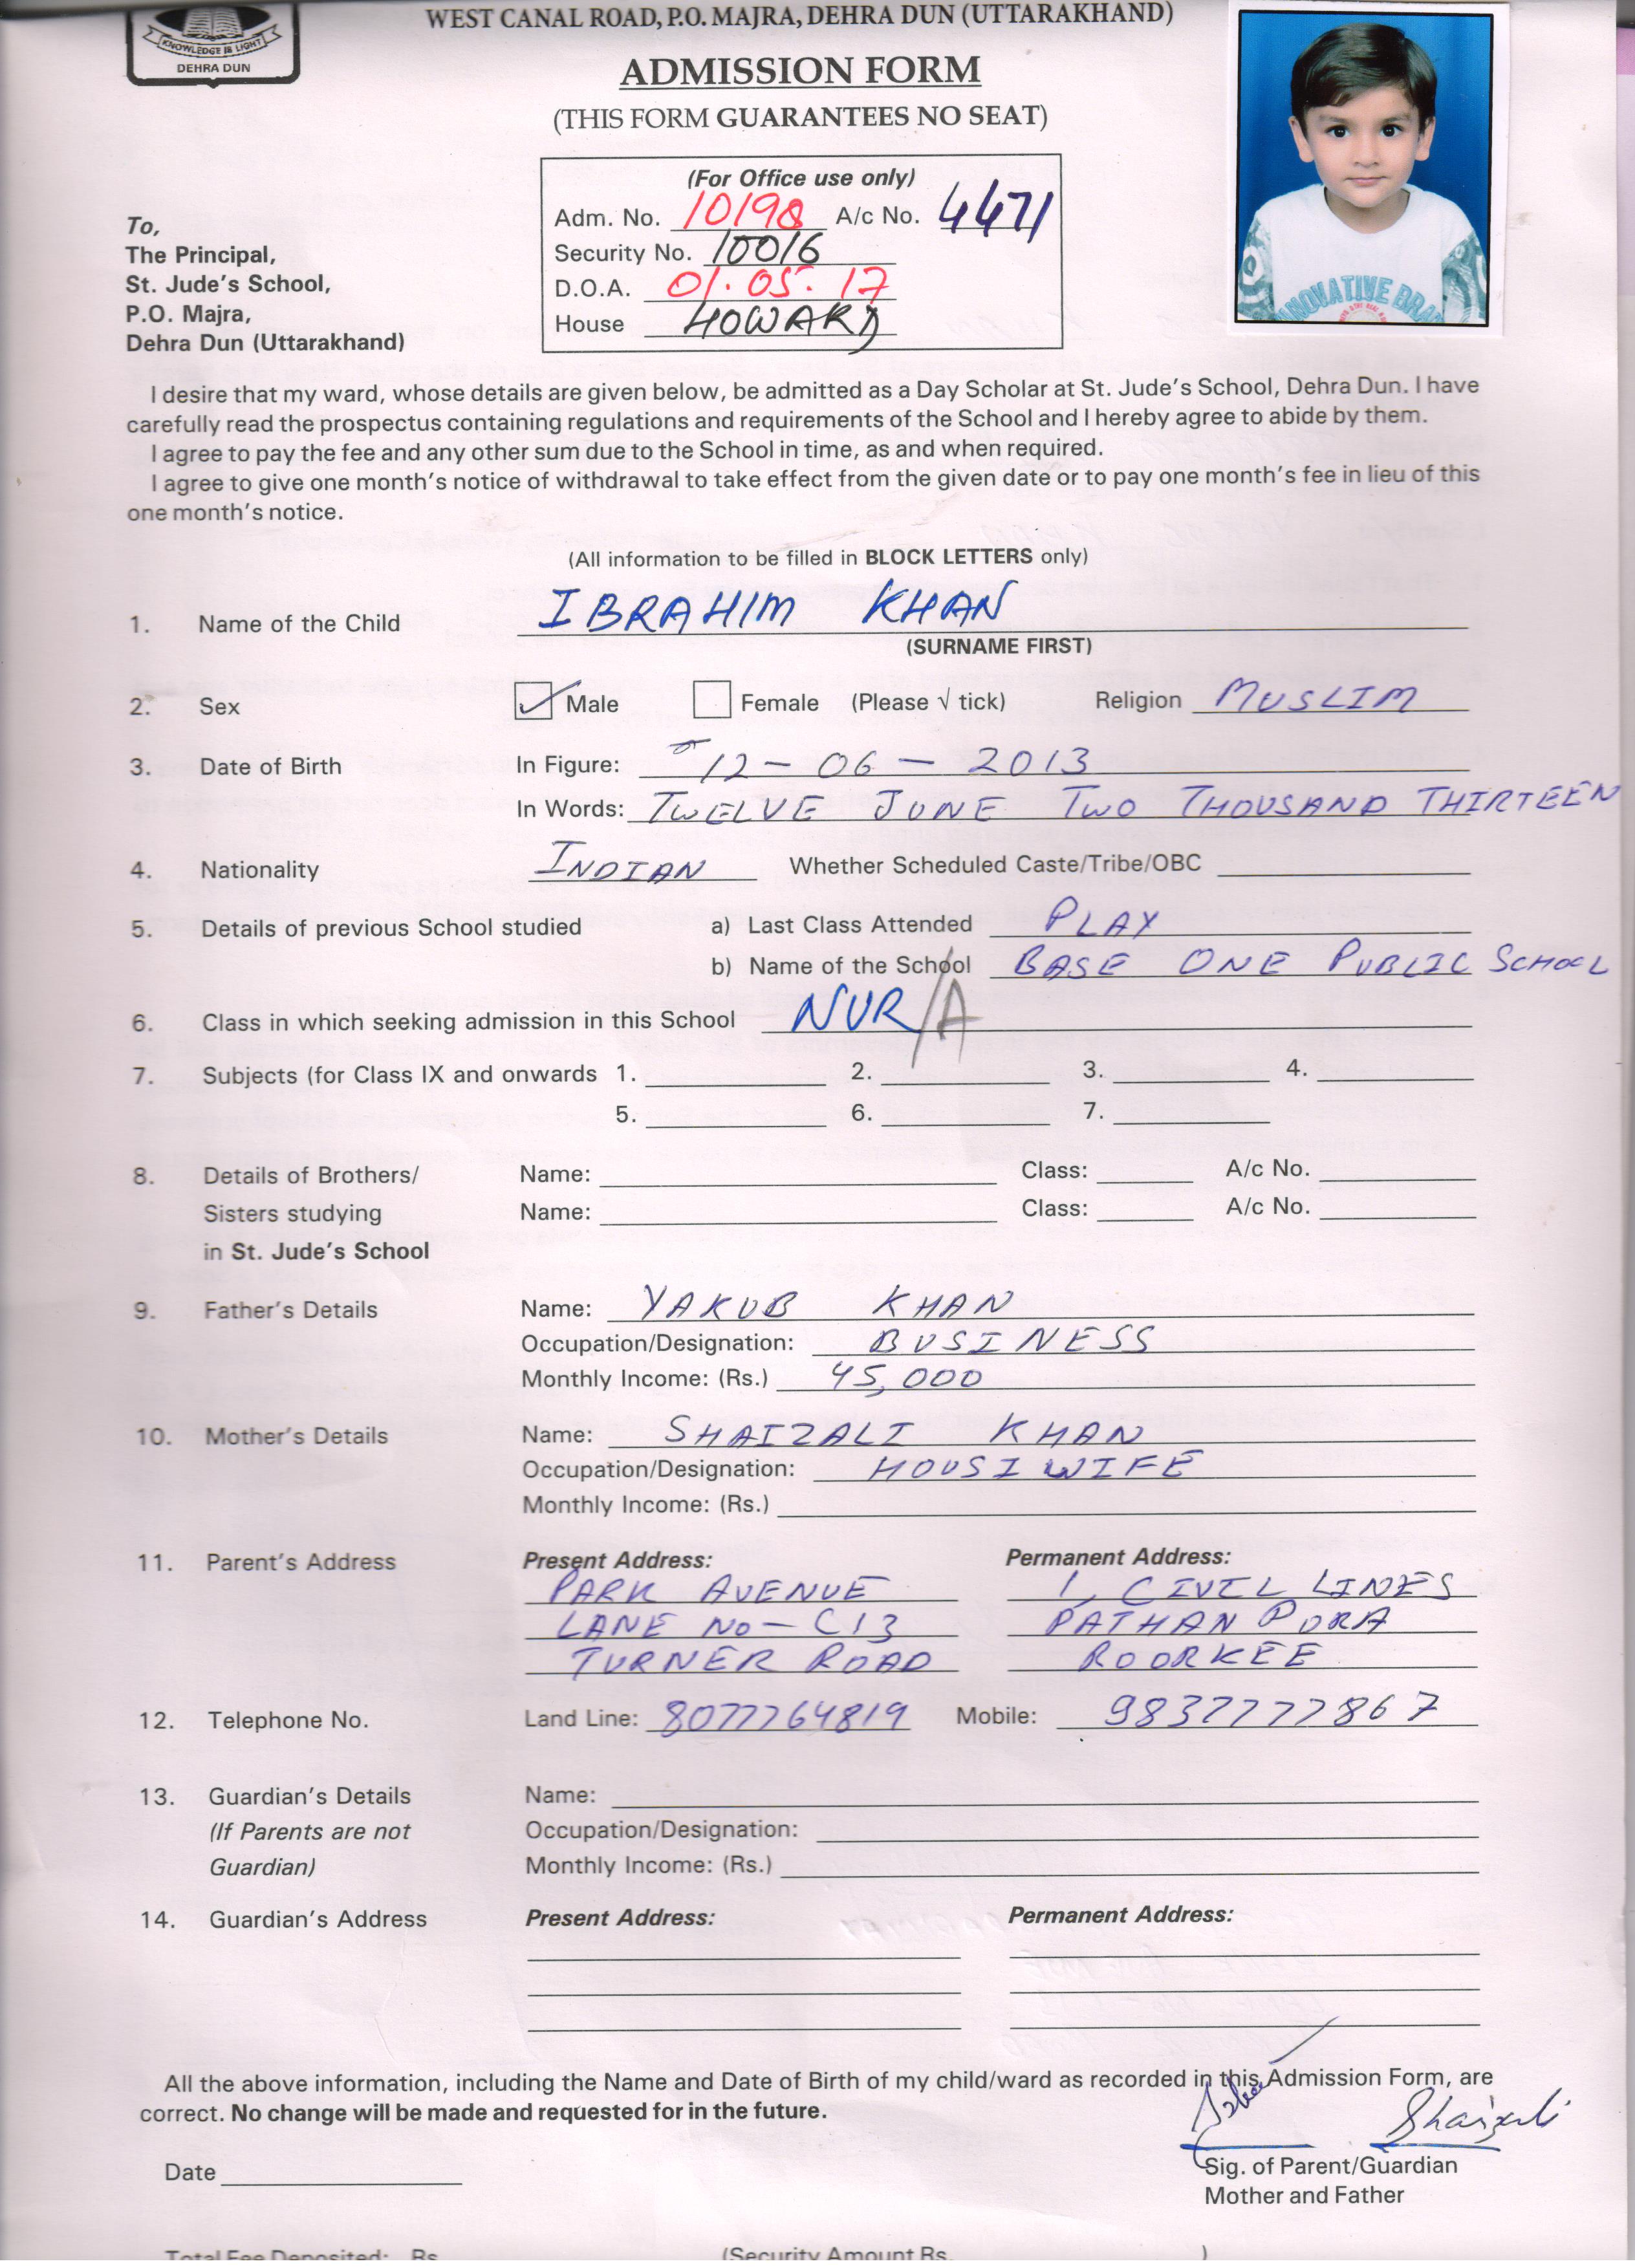 WEST CANAL ROAD, P.O. MAJRA, DEHRA DUN (UTTARAKHAND)
KNOWLEDGE IS LIGHT
DEHRA DUN
ADMISSION FORM
(THIS FORM GUARANTEES NO SEAT)
(For Office use only)
Adm. No. 10198 A/c No. 4471
Security No. 10016
D.O.A. 01.05.17
House HOWARD
To,
The Principal,
St. Jude's School,
P.O. Majra,
Dehra Dun (Uttarakhand)
I desire that my ward, whose details are given below, be admitted as a Day Scholar at St. Jude's School, Dehra Dun. I have
carefully read the prospectus containing regulations and requirements of the School and I hereby agree to abide by them.
I agree to pay the fee and any other sum due to the School in time, as and when required.
I agree to give one month's notice of withdrawal to take effect from the given date or to pay one month's fee in lieu of this
one month's notice.
(All information to be filled in BLOCK LETTERS only)
1. Name of the Child IBRAHIM KHAN
(SURNAME FIRST)
2. Sex Male Female (Please √ tick) Religion MUSLIM
3. Date of Birth In Figure: 12-06-2013
In Words: TWELVE JUNE TWO THOUSAND THIRTEEN
4. Nationality INDIAN Whether Scheduled Caste/Tribe/OBC
5. Details of previous School studied a) Last Class Attended PLAY
b) Name of the School BASE ONE PUBLIC SCHOOL
6. Class in which seeking admission in this School NUR/A
7. Subjects (for Class IX and onwards 1. 2. 3. 4.
5. 6. 7.
8. Details of Brothers/ Name: Class: A/c No.
Sisters studying Name: Class: A/c No.
in St. Jude's School
9. Father's Details Name: YAKUB KHAN
Occupation/Designation: BUSINESS
Monthly Income: (Rs.) 45,000
10. Mother's Details Name: SHAIZALI KHAN
Occupation/Designation: HOUSIWIFE
Monthly Income: (Rs.)
11. Parent's Address Present Address: Permanent Address:
PARK AVENUE 1, CIVIL LINES
LANE NO-C13 PATHAN PURA
TURNER ROAD ROORKEE
12. Telephone No. Land Line: 8077764819 Mobile: 9837777867
13. Guardian's Details Name:
(If Parents are not Occupation/Designation:
Guardian) Monthly Income: (Rs.)
14. Guardian's Address Present Address: Permanent Address:
All the above information, including the Name and Date of Birth of my child/ward as recorded in this Admission Form, are
correct. No change will be made and requested for in the future.
Shaizali
Date Sig. of Parent/Guardian
Mother and Father
Total Fee Deposited: Rs. (Security Amount Rs. )